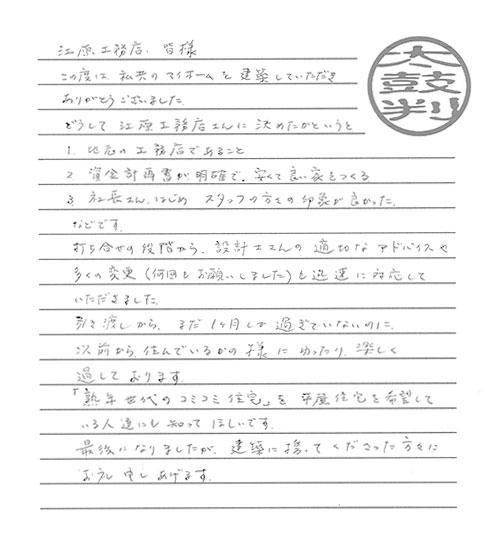 江原工務店、皆様
この度は、私共のマイホームを建築していただき
ありがとうございました。
どうして江原工務店さんに決めたかというと
1. 地元の工務店であること
2 資金計画書が明確で、安くて良い家をつくる
3 社長さん、はじめ スタッフの方々の印象が良かった。
などです。
打ち合せの段階から、設計士さんの適切なアドバイスや
多くの変更(何回もお願いしました)も迅速に対応して
いただきました。
引き渡しから、まだ1ヶ月しか過ぎていないのに、
以前から、住んでいるかの様にゆったり、楽しく
過しております。
「熟年世代のコミコミ住宅」を平屋住宅を希望して
いる人達にも知ってほしいです。
最後になりましたが、建築に携ってくださった方々に
お礼申しあげます。
太鼓判